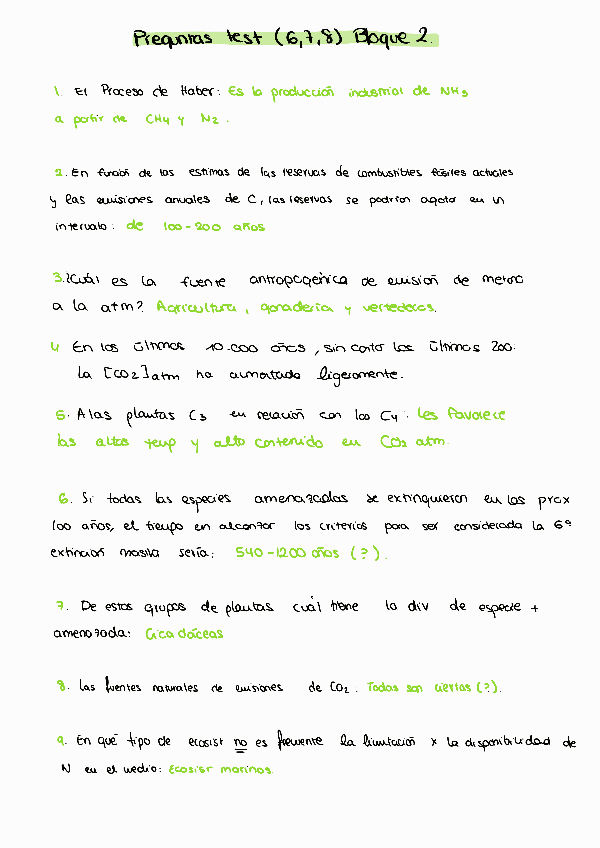 Preguntas test (6,7,8) Bloque 2.
1. El Proceso de Haber: Es la producción industrial de NH3
a partir de CH4 y N2.
2. En función de las estimas de las reservas de combustibles fósiles actuales
y las emisiones anuales de C, las reservas se podrían agotar en un
intervalo: de 100-200 años
3. ¿Cuál es la fuente antropogénica de emisión de metano
a la atm? Agricultura, ganadería y vertederos.
4 En los últimos 10.000 años, sin contar los últimos 200.
la [CO2]atm ha aumentado ligeramente.
5. A las plantas C3 en relación con las C4: Les favorece
las altas temp y alto contenido en CO2 atm.
6. Si todas las especies amenazadas se extinguieron en los prox
100 años, el tiempo en alcanzar los criterios para ser considerada la 6ª
extinción masiva sería: 540-1200 años (?).
7. De estos grupos de plantas cuál tiene la div de especie +
amenazada: Cicadáceas
8. Las fuentes naturales de emisiones de CO2. Todas son ciertas (?).
9. En qué tipo de ecosist no es frecuente la limitación x la disponibilidad de
N en el medio: Ecosist marinos.